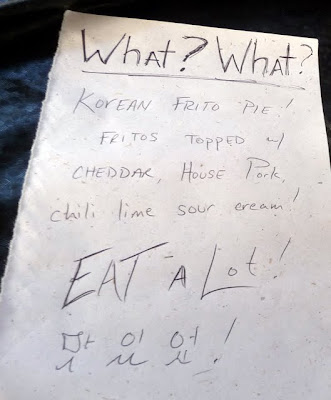 WHAT? WHAT?
KOREAN FRITO PIE!
FRITOS TOPPED w/
CHEDDAR, HOUSE PORK,
chili lime sour cream!
EAT A Lot!